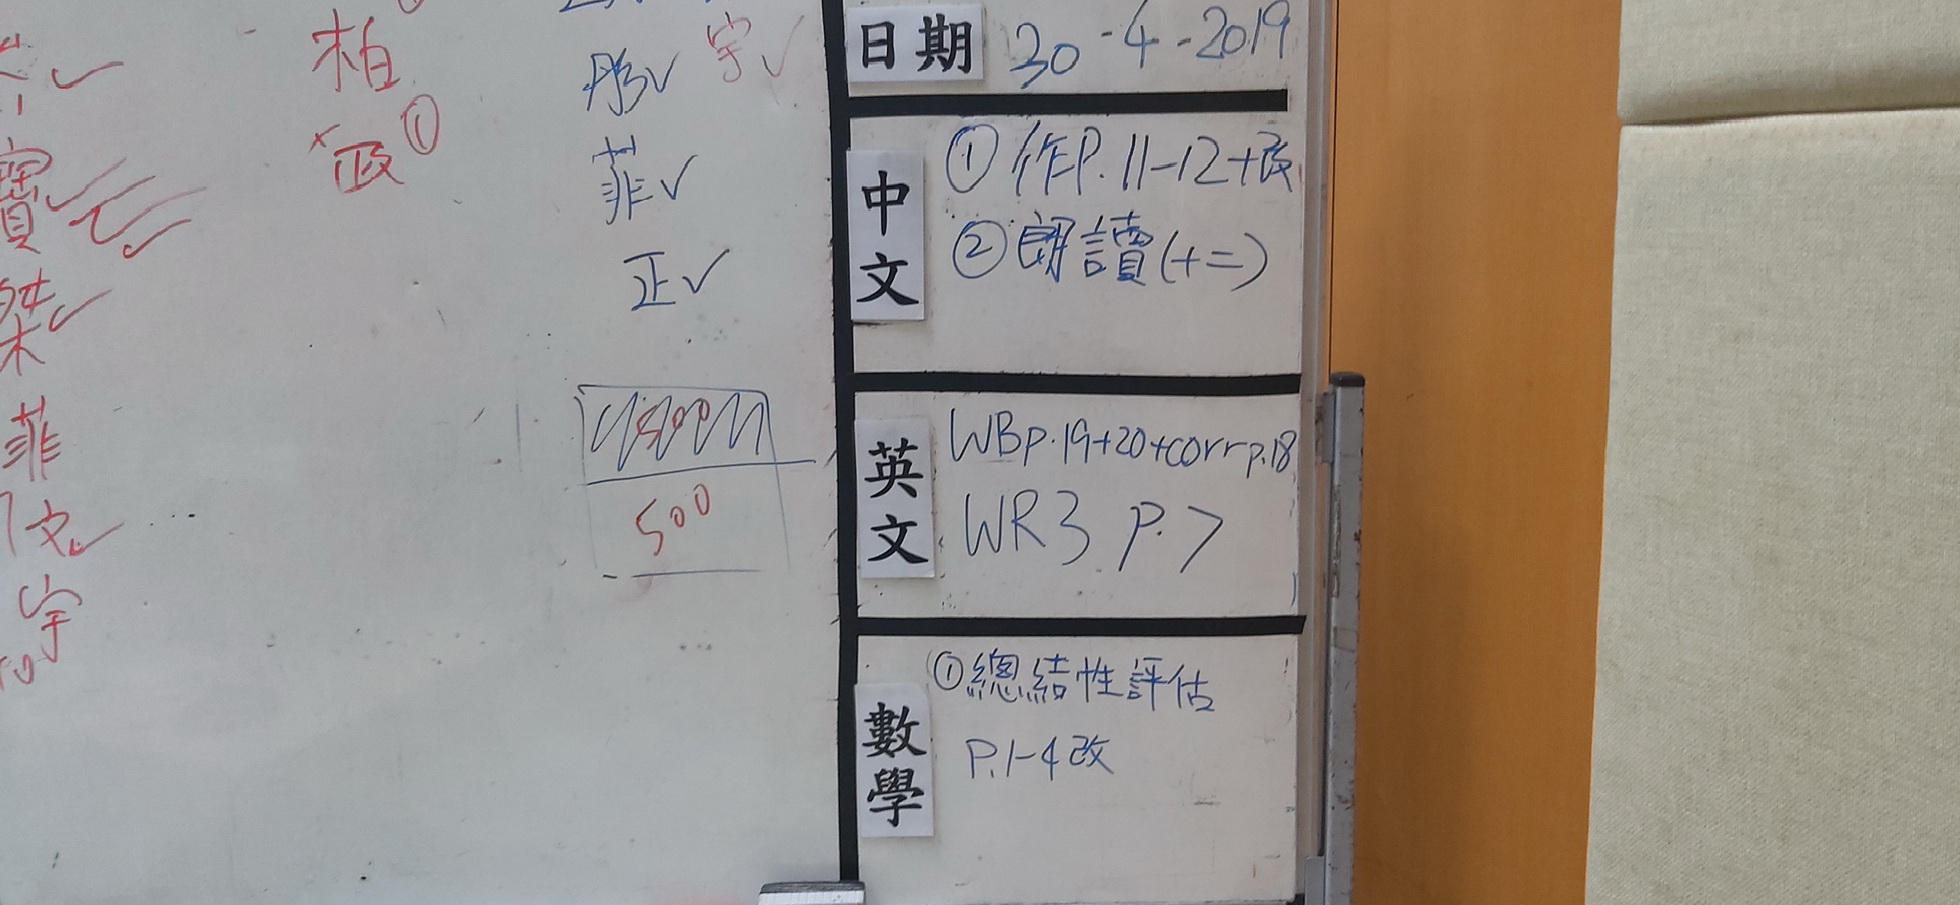 柏
①
彤✓
宇✓
菲✓
正✓
500
寶
桀
菲
文
宇
日期 30-4-2019
中文
① 作P.11-12+改
② 朗讀(十二)
英文
WBp.19+20+corrp.18
WR3 P.7
數學
①總結性評估
P.1-4改